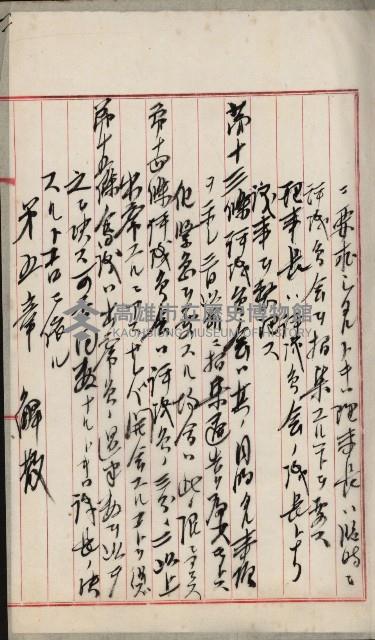 ニ要求シタルトキハ理事長ハ臨時ニ
評議員会ヲ招集スルコトヲ要ス
理事長ハ評議員会ノ議長トナリ
議事ヲ整理ス
第十三條評議員会ハ其ノ目的タル事項
ヲ示シ三日以前ニ招集通告ヲ為スコトヲ要ス
但シ緊急ヲ要スル場合ハ此ノ限ニアラス
第十四條評議員会ハ評議員ノ三分ノ二以上
出席スルニアラサレバ開会スルコトヲ得ズ
第十五條会議ハ出席員ノ過半数ヲ以テ
之ヲ決ス可否同数ナルトキハ議長ノ決
スルトコロニ依ル
第五章 解散
高雄市立歷史博物館
KAOHSIUNG MUSEUM OF HISTORY